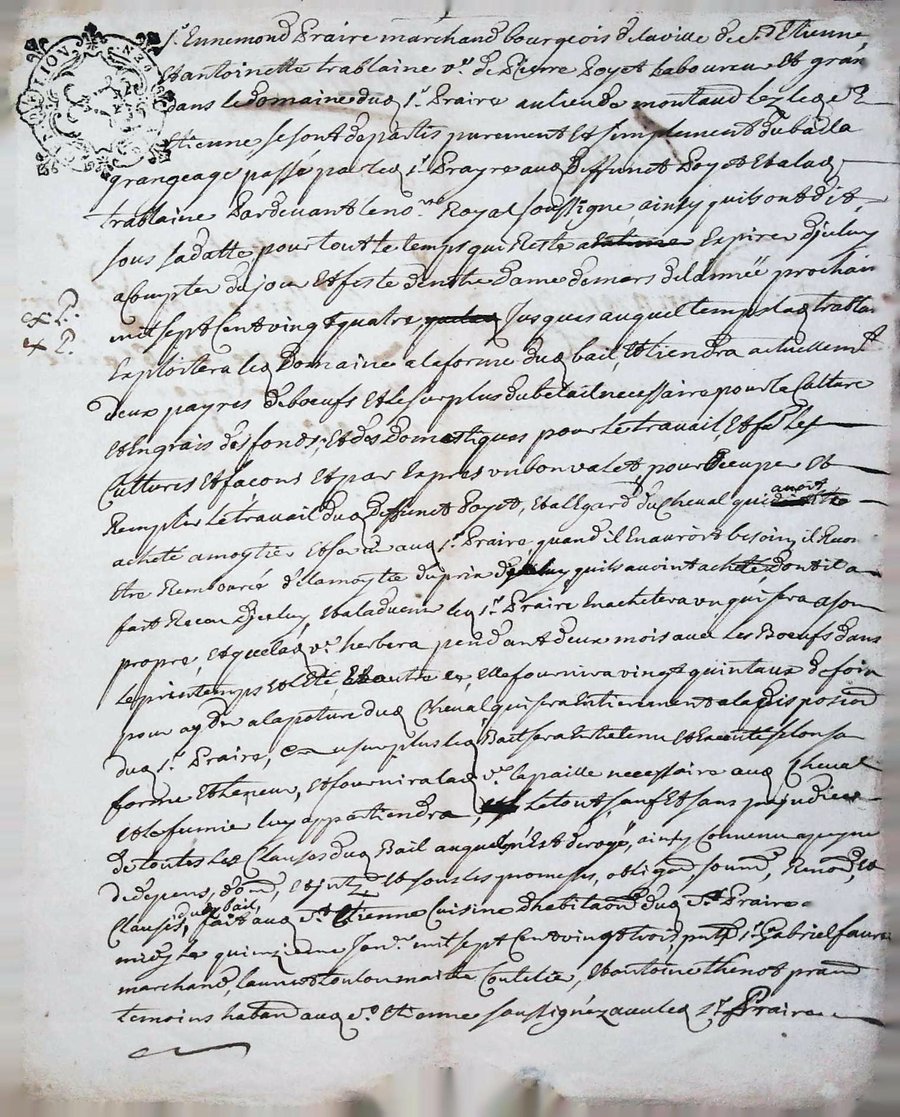 Sr. Ennemond Praire marchand bourgeois de la ville de St. Etienne
Et antoinette trablaine vve de Pierre Poyet laboureur Et gran
dans le domaine dud Sr. Praire au lieu de montaud lez led St
Etienne se sont departis purement Et simplement du bail a
grangeage passé par led Sr. Prayre aud deffunct Poyet Et a lad
trablaine Pardevant le nore Royal soussigne ainsy quils ont dit
sous sa datte pour tout le temps qui Reste a Expirer dJceluy
a Compter du jour Et feste de notre dame de mars de lannée prochain
mil sept Cent vingt quatre, Jusques auquel temps lad trabla.
Exploitera led Domaine a la forme dud bail, Et tiendra actuellement
deux payres de boeufs Et le surplus du betail necessaire pour la Culture
Et Engrais des fonds, Et des Domestiques pour le travail, Et les
Cultures Et façons Et par Expres un bon valet pour occuper Et
Remplir le travail dud deffunct Poyet, Et a l'Egard du Cheval qui avoit
acheté a moytié Et aud Sr. Praire quand il En auroit besoin, il
Etre Remboursé de la moytié du prix quils avoint acheté dont il a
fait Receu dJceluy, Et a ladvenir led Sr. Praire En achetera un qui sera a son
propre, Et que lad ve herbera pendant deux mois avec les Boeufs dans
le printemps Et l'Eté, Et outre ce, Elle fournira vingt quintaux de foin
pour ayder a la pature dud Cheval qui sera Entierement a la disposiōn
dud Sr. Praire, Et au surplus led Bail sera Entretenu Et Executé selon sa
forme Et teneur, Et fournira lad ve la paille necessaire aud Cheval
Et le fumie luy appartiendra, le tout sauf Et sans prejudice
de toutes les Clauses dud Bail auquel n'Est derogé, ainsy Convenu a peyne
de depens, dom, Et jntz, Et sous les promesses, obligaōn, soumō, Renonō, Et
dud bail,
Clauses, fait aud St. Etienne Cuisine dhabitaōn dud Sr. Praire
midy le quinzieme Janv. mil sept Cent vingt trois, pnts Sr. Gabriel faure
marchand, toulon maitre Coutelie, Et antoine thenot pratn
temoins habans aud St. Etienne soussignéz avec led Sr. Praire